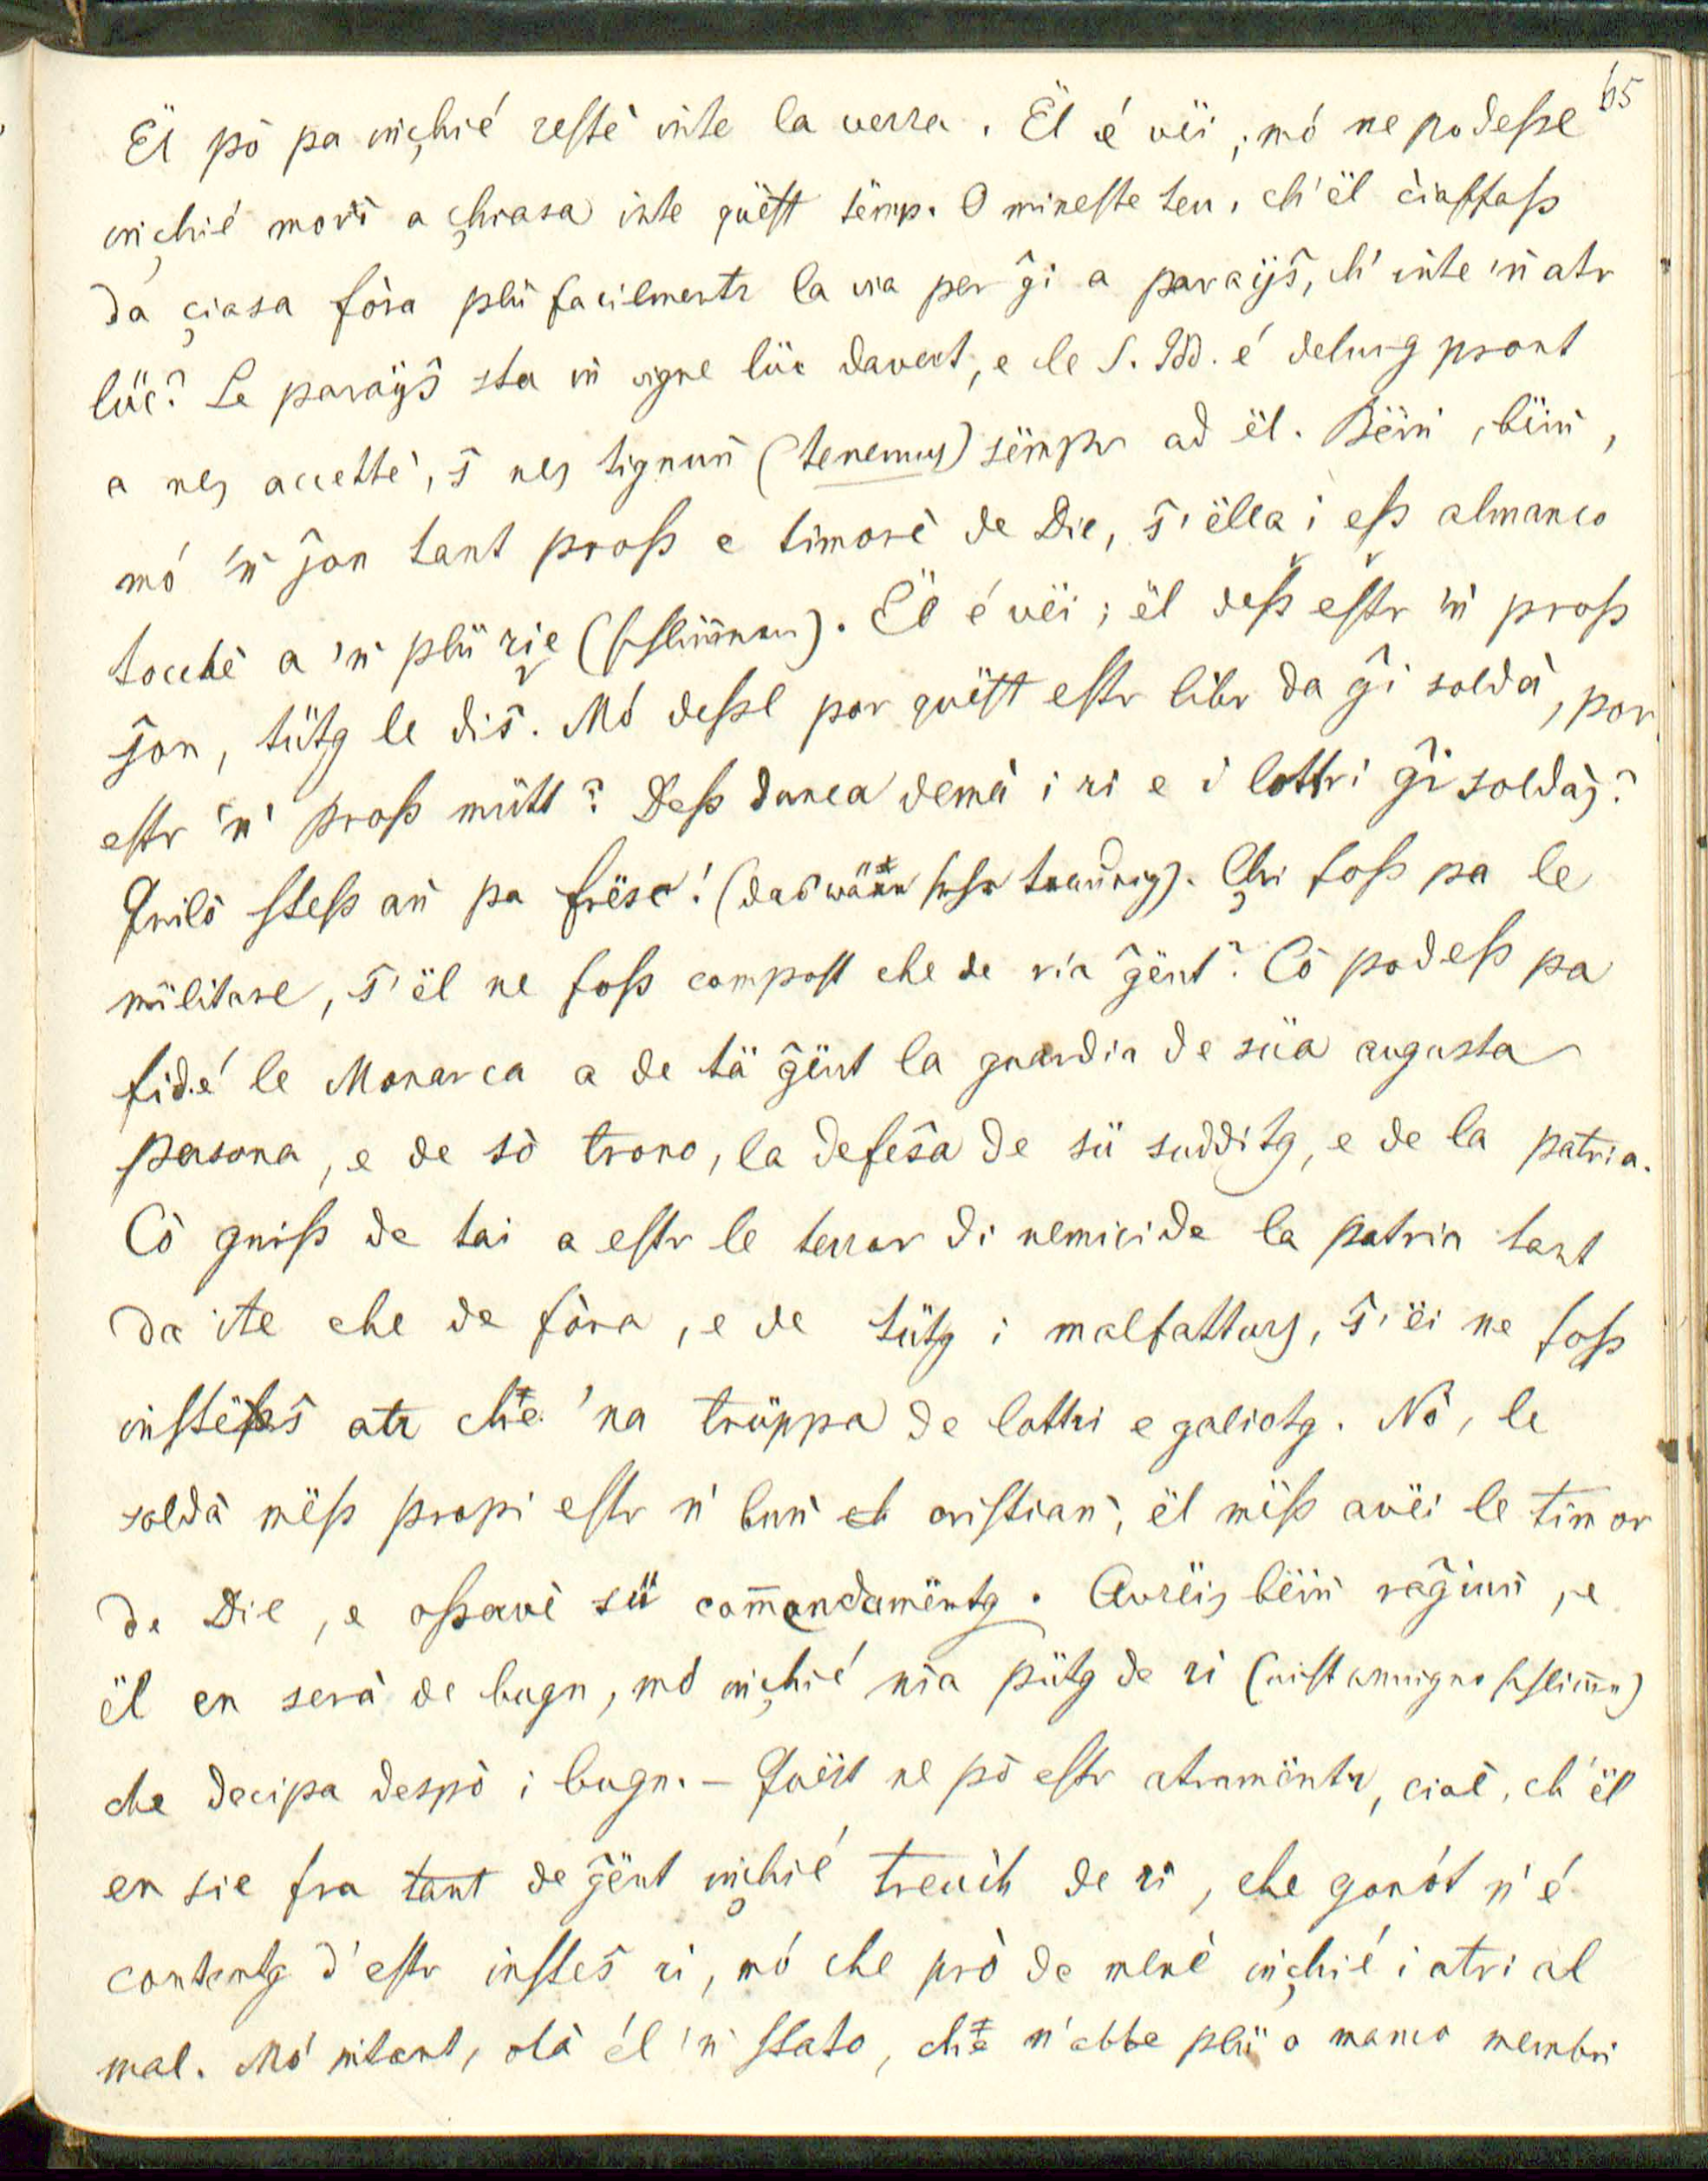 65
Ël pò pa inçhié restè inte la verra. Ël é vëi; mó ne podeßel
inçhié morì a çhiasa inte quëst tëmp. O mineste teu, ch'ël ciaffaß
da çiasa fòra plü facilmentr la via per ĝì a paraÿŝ, ch' inte 'ṅ atr
lüc? Le paraÿŝ sta in vigne lüc davert, e le S. Idd. é delung pront
a nes accettè, ŝ' nes tignuṅ (tenemus) sëmpr ad ël. Bëiṅ, bëiṅ,
mó 'ṅ ĵon tant proß e timorè de Die, ŝ'ëlla i eß almanco
tocchè a 'ṅ plü rie (schlimmer). Ël é vëi; ël deß estr 'ṅ proß
ĵon, tütg le dis̄. Mó deßel por quëst estr libr da ĝì soldà, por
estr 'ṅ proß mütt? Deß dunca demà i ri e i lottri ĝì soldàs?
Quilò steß aṅ pa frësc! (das wäre sehr traurig). Çhi foß pa le
militare, ŝ'ël ne foß compost che de ria ĝënt? Cò podeß pa
fidé le Monarca a de tä ĝënt la guardia de süa augusta
persona, e de sò trono, la defeŝa de sü suddìtg, e de la patria.
Cò gniß de tai a estr le terror di nemici de la patria tant
da ite che de fòra, e de tütg i malfatturs, ŝ'ëi ne foß
instëŝ atr che 'na trüppa de lottri e galiotg. Nò, le
soldà mëß propi estr ṅ buṅ cristiaṅ, ël mëß avëi le timor
de Die, e oßervè sü com̄andamëntg. Avrëis bëiṅ raĝiuṅ, e
ël en serà de bugn, mó inçhié nia pütg de ri (nicht wenige schlimme)
che decipa despò i bugn. – Quëst ne pò estr atramëntr, cioè, ch'ël
en sie fra tant de ĝënt inçhié treuch de ri, che gonót n'é
contentg d'estr insteŝ ri, mó che prò de menè inçhié i atri al
mal. Mó intant, olà él 'ṅ stato, che n'ebbe plü o manco membri